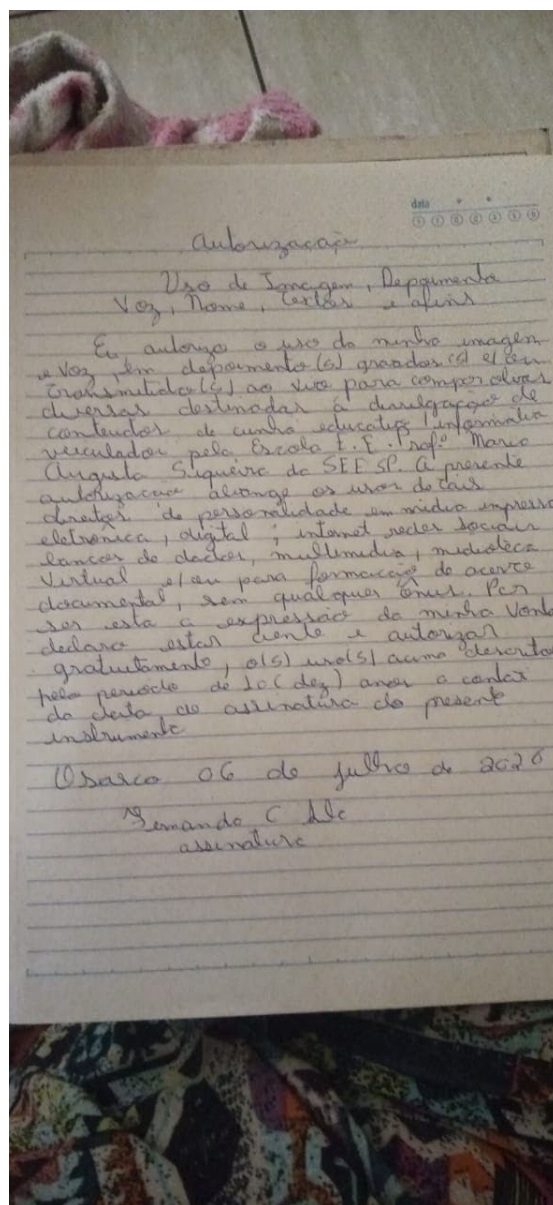 data
Autorizacaçõe
Uso de Imagem, Depoimento
Voz, Nome, Cartas e afins
Eu autorizo o uso da minha imagem
e voz, em depoimento(s) gravados(s) e/ou
transmitido(s) ao vivo para compor obras
diversas destinadas à divulgação de
conteudos de cunho educativo, informativo
veiculador pela Escola E. E. Profº Maria
Augusta Siqueira da SEE SP. A presente
autorizacao abrange os usos de tais
direitos de personalidade em midia impressa
eletrônica, digital, internet, redes sociais
bancos de dados, multimidia, midioteca
Virtual e/ou para formação de acervo
documental, sem qualquer ônus. Por
ser esta a expressão da minha Vonta
declaro estar ciente e autorizar
gratuitamente, o(s) uso(s) acima descrito
pelo periodo de 10 (dez) anos a contar
da data de assinatura do presente
instrumento
Osasco 06 de julho de 2020
Fernando C
assinatura